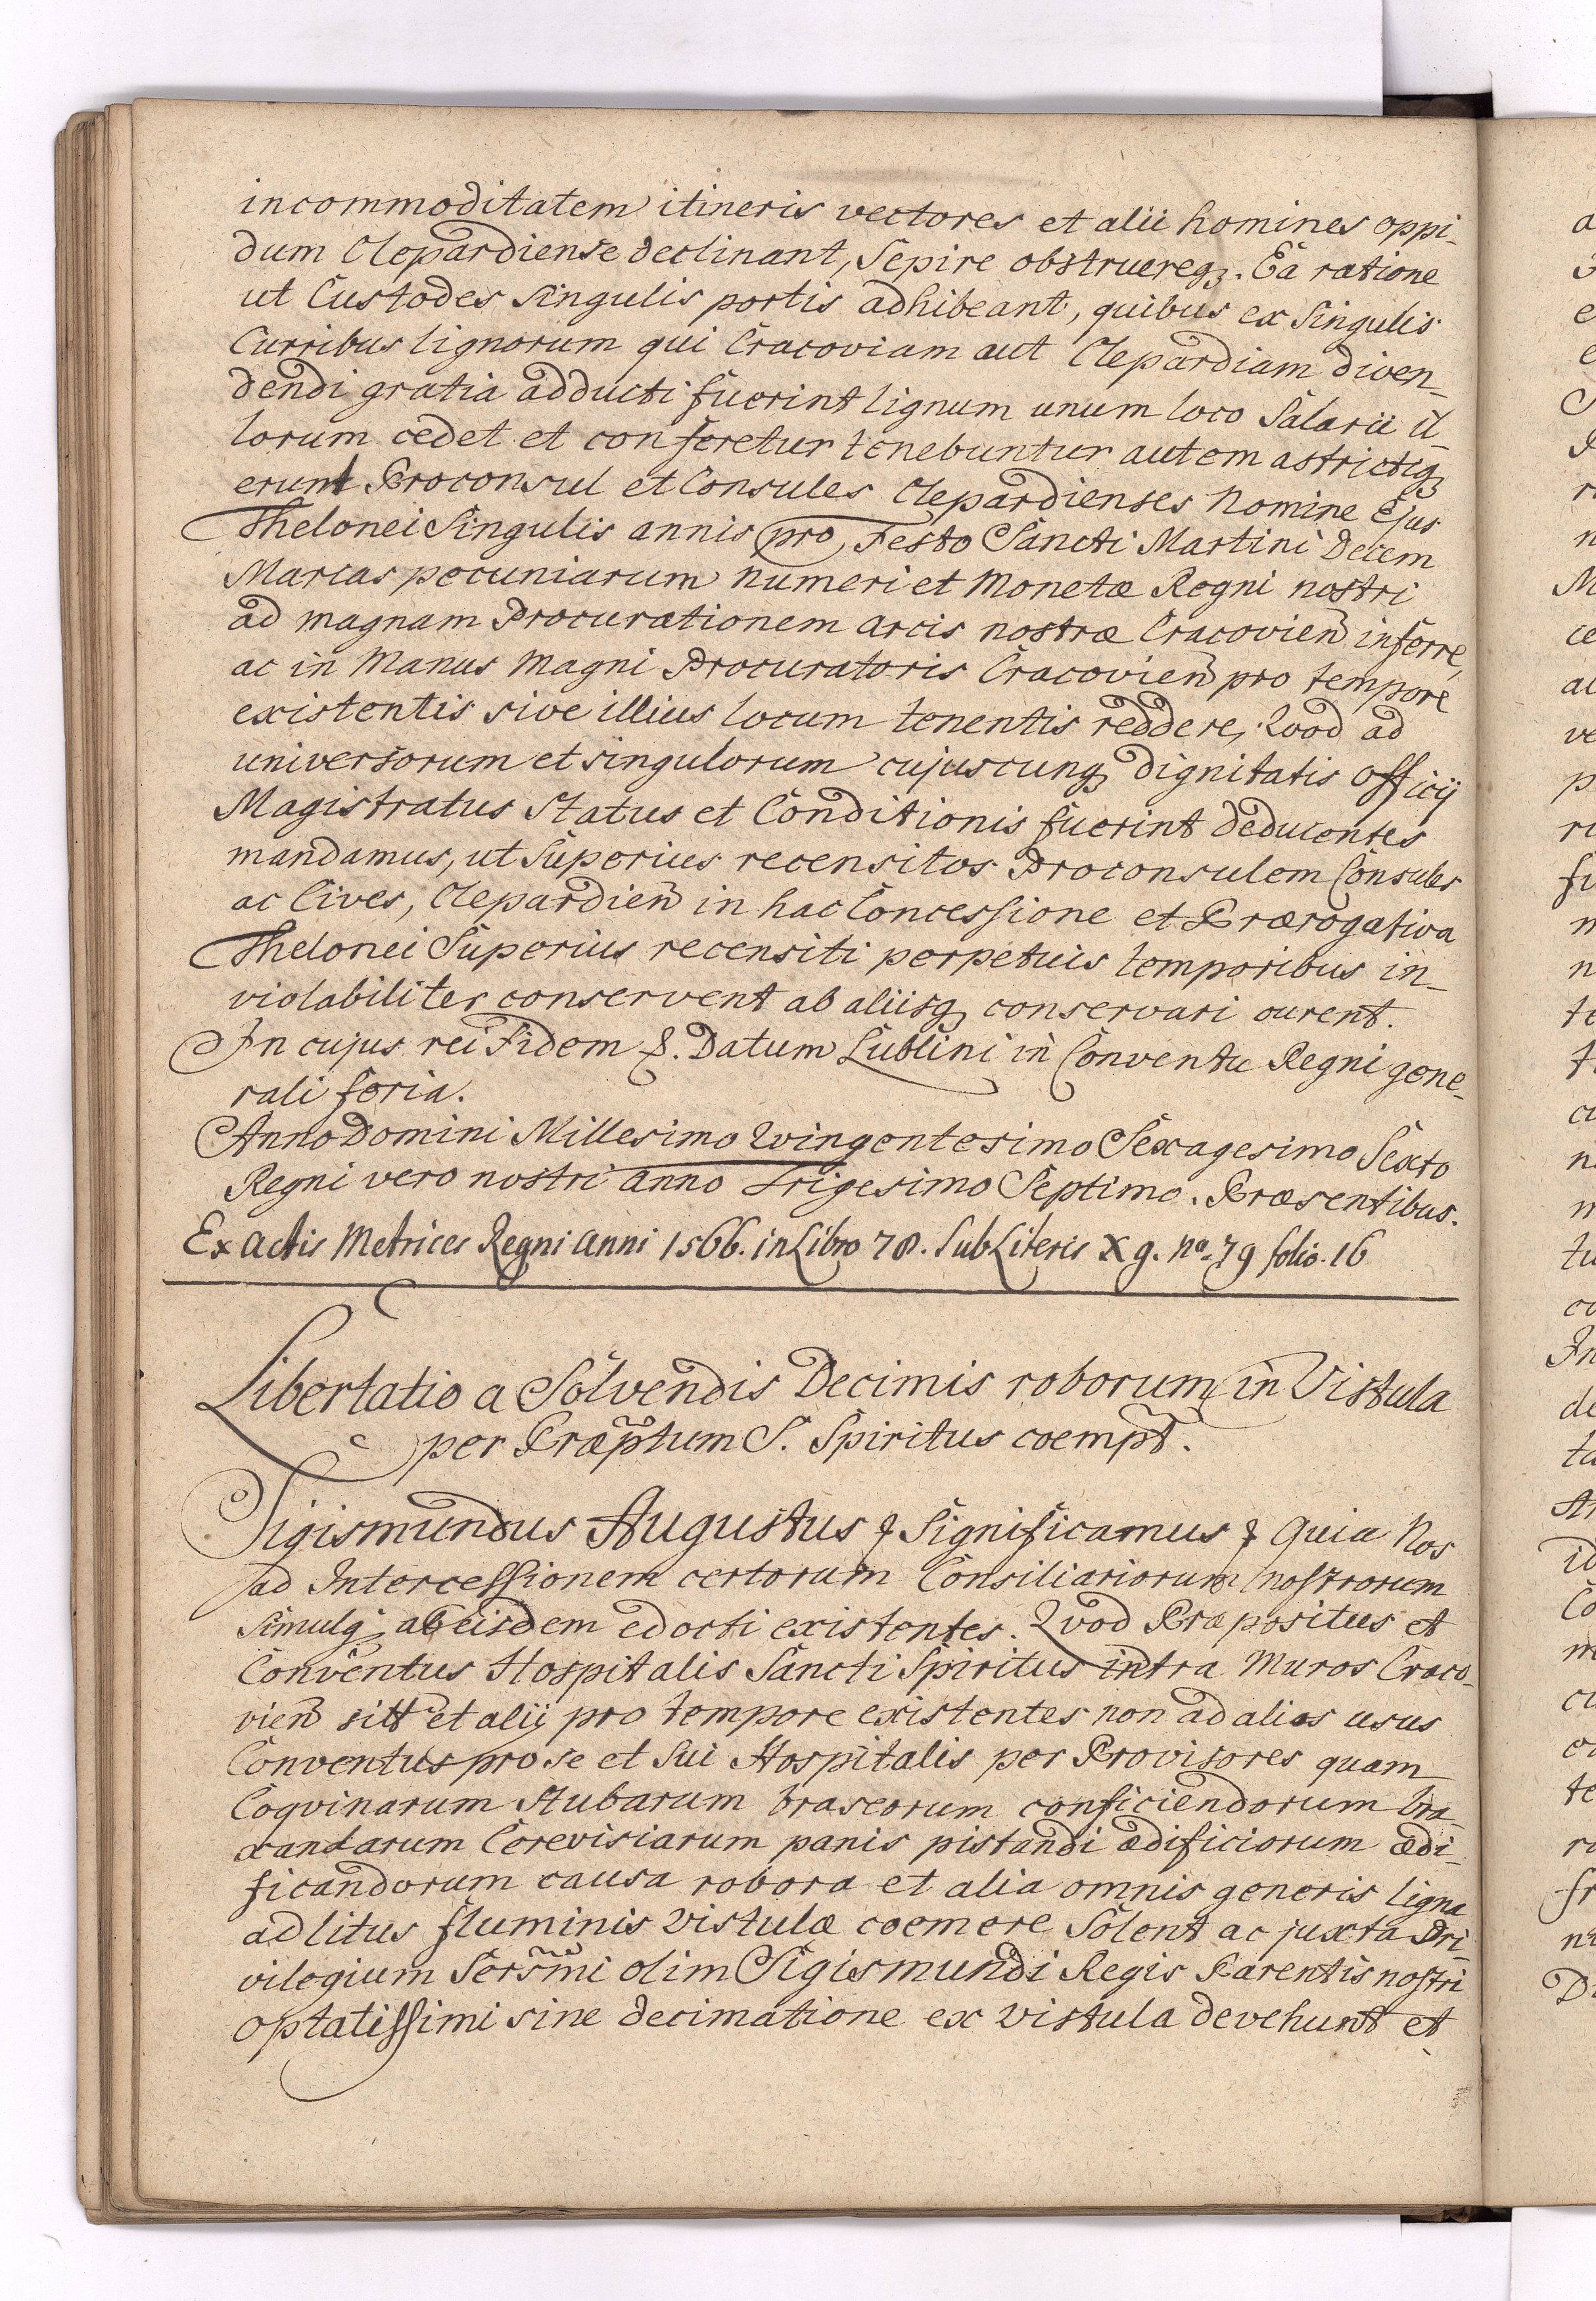 incommoditatem itineris vectores et alii homines oppi-
dum Clepardiense declinant, Sepire obstruereq3. Ea ratione
ut Custodes singulis portis adhibeant, quibus ex singulis
Curribus lignorum qui Cracoviam aut Clepardiam diven-
dendi gratia adducti fuerint lignum unum loco Salarii il-
lorum cedet et conferetur tenebuntur autem astrictiq3
erunt Proconsul et Consules Clepardienses Nomine Ejus
Thelonei Singulis annis pro Festo Sancti Martini Decem
Marcas pecuniarum numeri et Monetæ Regni nostri
ad magnam Procurationem arcis nostræ Cracovien̄ inferre,
ac in Manus Magni Procuratoris Cracovien̄ pro tempore
existentis sive illius locum tenentis reddere, Qvod ad
universorum et singulorum cujuscunq3 dignitatis officij
Magistratus Status et Conditionis fuerint deducentes
mandamus, ut Superius recensitos Proconsulem Consules
ac Cives, Clepardien̄ in hac Concessione et Prærogativa
Thelonei Superius recensiti perpetuis temporibus in-
violabiliter conservent ab aliisq3 conservari curent.
In cujus rei Fidem &. Datum Lublini in Conventu Regni gene-
rali feria.
Anno Domini Millesimo Qvingentesimo Sexagesimo Sexto
Regni vero nostri anno Trigesimo Septimo. Præsentibus.
Ex Actis Metrices Regni Anni 1566. in Libro 78. Sub Literis X g. nº. 79 folio. 16
Libertatio a Solvendis Decimis roborum in Vistula
per Præp̃tum S. Spiritus coemp̃t.
Sigismundus Augustus & Significamus & Quia Nos
ad Intercessionem certorum Consiliariorum nostrorum
Simulq3 ab eisdem edocti existentes. Qvod Præpositus et
Conventus Hospitalis Sancti Spiritus intra Muros Craco-
vien̄ sitt et alij pro tempore existentes non ad alios usus
Conventus pro se et Sui Hospitalis per Provisores quam
Coqvinarum Stubarum braseorum conficiendorum bra-
xandarum Cerevisiarum panis pistandi ædificiorum ædi-
ficandorum causa robora et alia omnis generis Ligna
ad litus fluminis Vistulæ coemere Solent ac juxta Pri-
vilegium Sers̃mi olim Sigismundi Regis Parentis nostri
optatissimi sine decimatione ex Vistula devehunt et